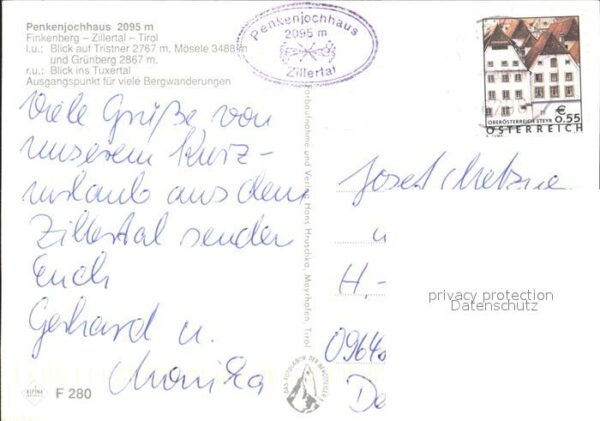 Penkenjochhaus 2095 m
Finkenberg – Zillertal – Tirol
l.u.: Blick auf Tristner 2767 m, Mösele 3488 m
und Grünberg 2867 m.
r.u.: Blick ins Tuxertal
Ausgangspunkt für viele Bergwanderungen
Viele Grüße von
unserem Kurz-
urlaub aus dem
Zillertal senden
Euch
Gerhard u.
Monika
F 280
Farbaufnahme und Verlag Hans Hruschka, Mayrhofen, Tirol
Penkenjochhaus
2095 m
Zillertal
€
0.55
OBERÖSTERREICH STEYR
ÖSTERREICH
Josef
u
H.-
0964
De
privacy protection
Datenschutz